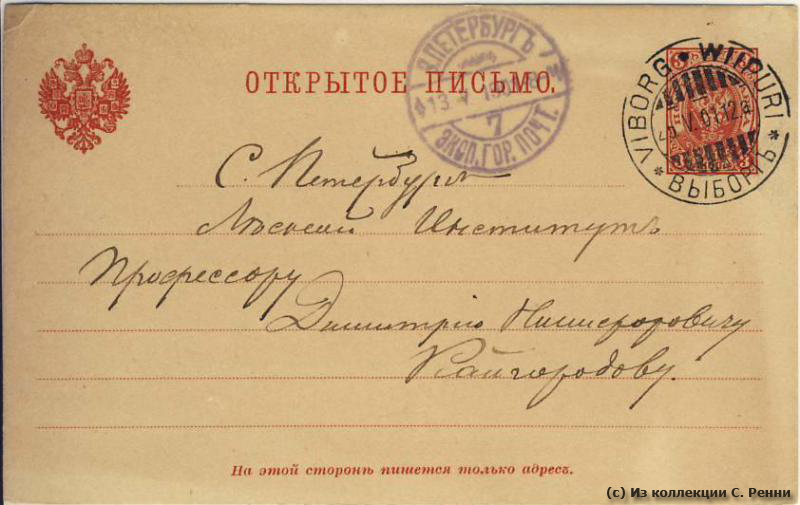 ОТКРЫТОЕ ПИСЬМО.
С.ПЕТЕРБУРГЪ
13 V
7
ЭКСП. ГОР. ПОЧТ.
VIBORG * WIIPURI * ВЫБОРГЪ *
V.01.12
С. Петербургъ
Лѣсной Институтъ
Профессору
Димитрію Никифоровичу
Кайгородову.
На этой сторонѣ пишется только адресъ.
(с) Из коллекции С. Ренни